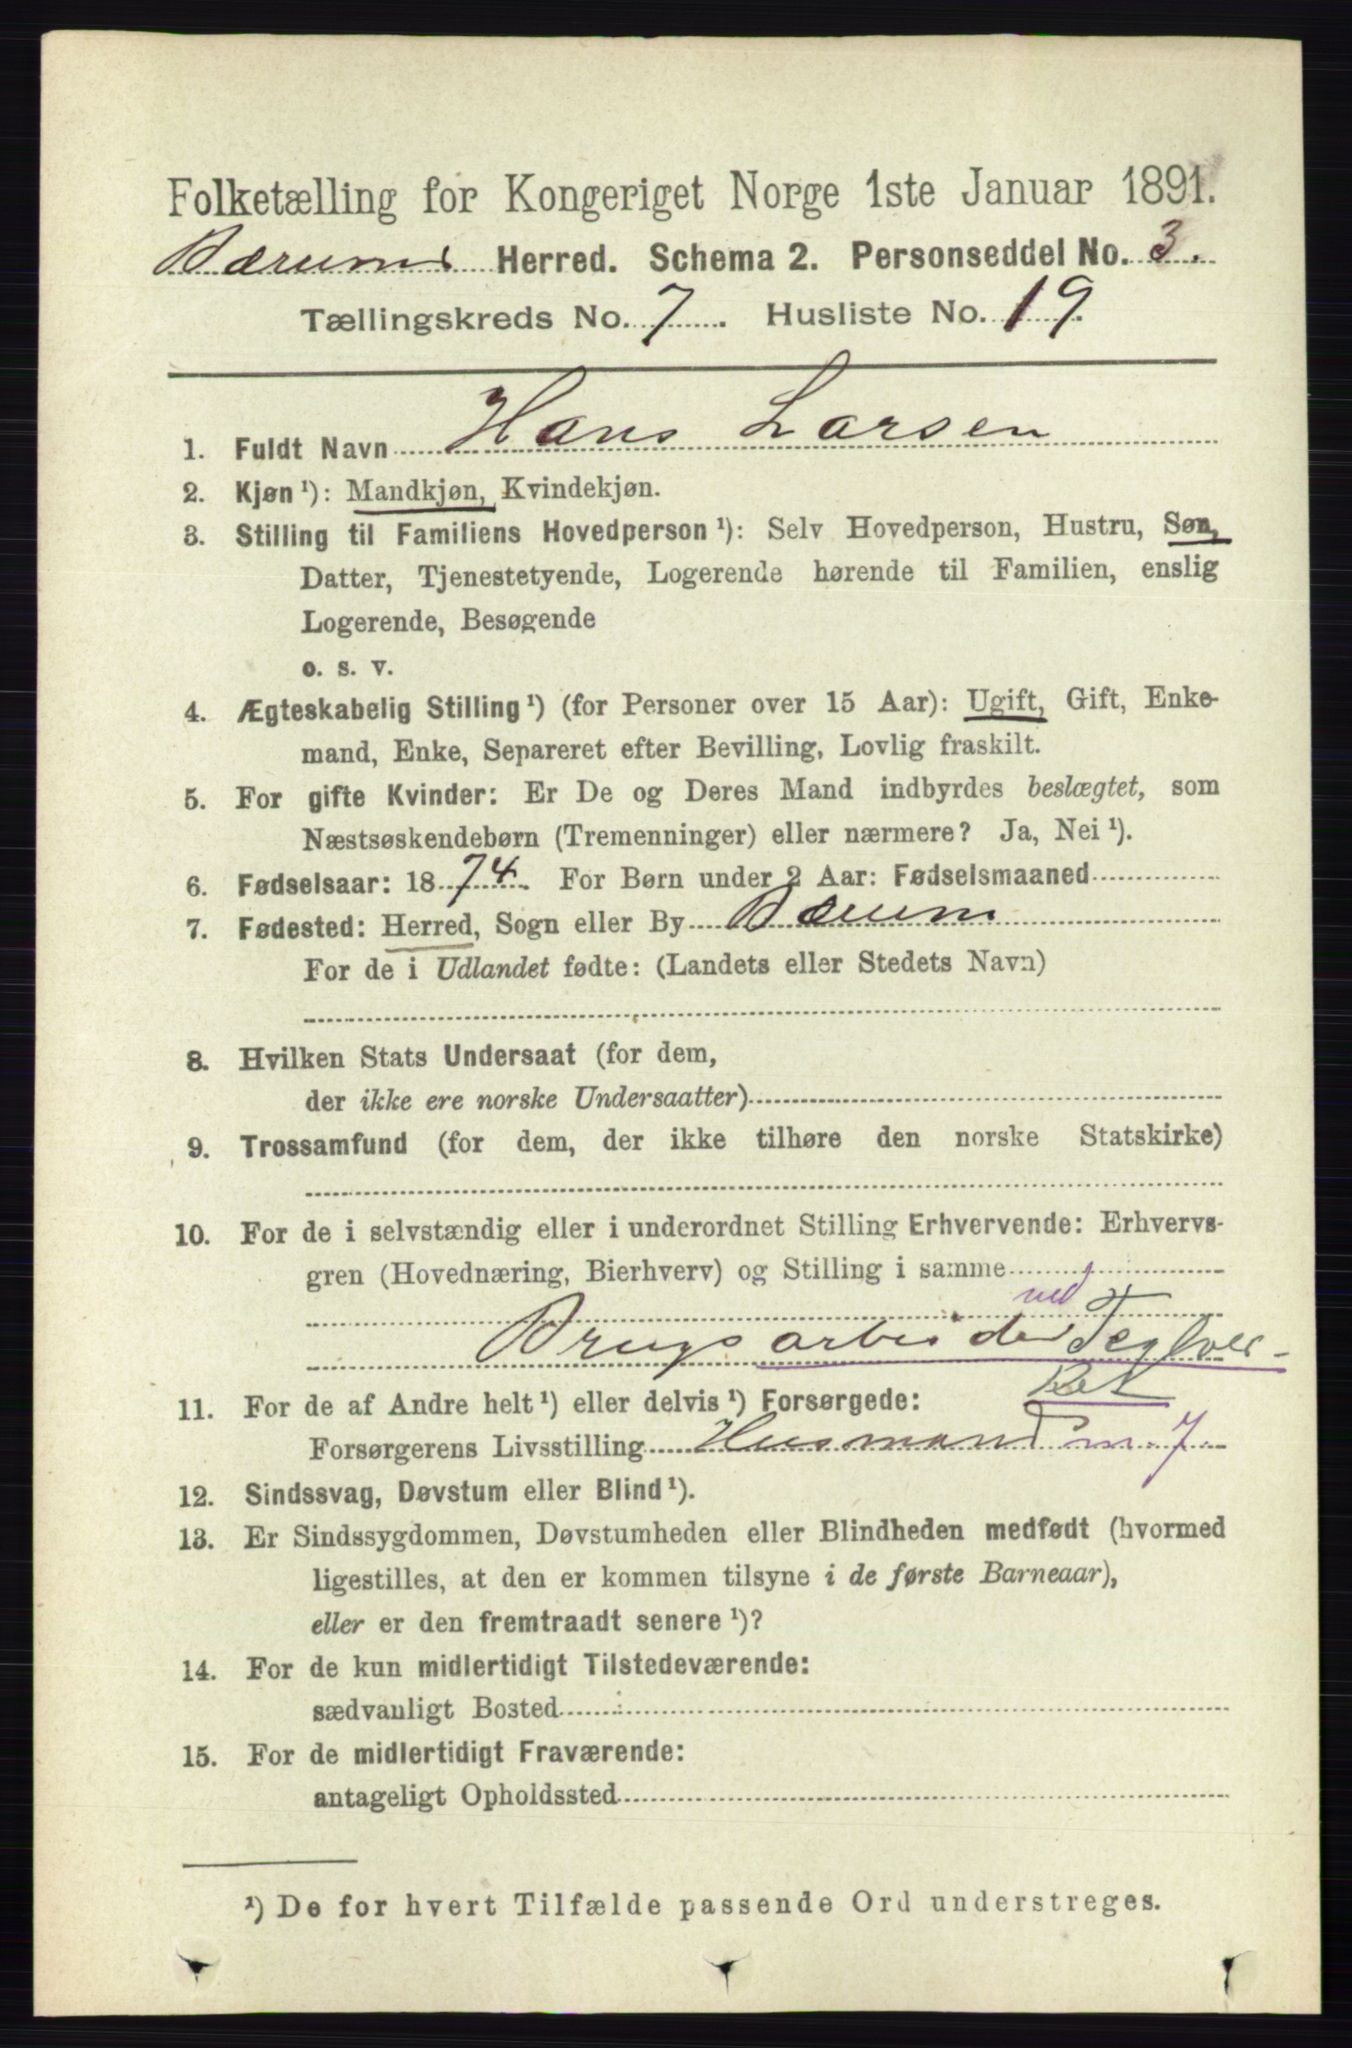 Folketælling for Kongeriget Norge 1ste Januar 1891.
Bærums Herred. Schema 2. Personseddel No. 3.
Tællingskreds No. 7. Husliste No. 19.
1. Fuldt Navn Hans Larsen
2. Kjøn ¹): Mandkjøn, Kvindekjøn.
3. Stilling til Familiens Hovedperson ¹): Selv Hovedperson, Hustru, Søn,
Datter, Tjenestetyende, Logerende hørende til Familien, enslig
Logerende, Besøgende
o. s. v.
4. Ægteskabelig Stilling ¹) (for Personer over 15 Aar): Ugift, Gift, Enke-
mand, Enke, Separeret efter Bevilling, Lovlig fraskilt.
5. For gifte Kvinder: Er De og Deres Mand indbyrdes beslægtet, som
Næstsøskendebørn (Tremenninger) eller nærmere? Ja, Nei ¹).
6. Fødselsaar: 1874. For Børn under 2 Aar: Fødselsmaaned
7. Fødested: Herred, Sogn eller By Bærum
For de i Udlandet fødte: (Landets eller Stedets Navn)
8. Hvilken Stats Undersaat (for dem,
der ikke ere norske Undersaatter)
9. Trossamfund (for dem, der ikke tilhøre den norske Statskirke)
10. For de i selvstændig eller i underordnet Stilling Erhvervende: Erhvervs-
gren (Hovednæring, Bierhverv) og Stilling i samme
ved
Brugsarbeider Teglver-
ket
11. For de af Andre helt ¹) eller delvis ¹) Forsørgede:
Forsørgerens Livsstilling Husmand m. J.
12. Sindssvag, Døvstum eller Blind ¹).
13. Er Sindssygdommen, Døvstumheden eller Blindheden medfødt (hvormed
ligestilles, at den er kommen tilsyne i de første Barneaar),
eller er den fremtraadt senere ¹)?
14. For de kun midlertidigt Tilstedeværende:
sædvanligt Bosted
15. For de midlertidigt Fraværende:
antageligt Opholdssted
¹) De for hvert Tilfælde passende Ord understreges.